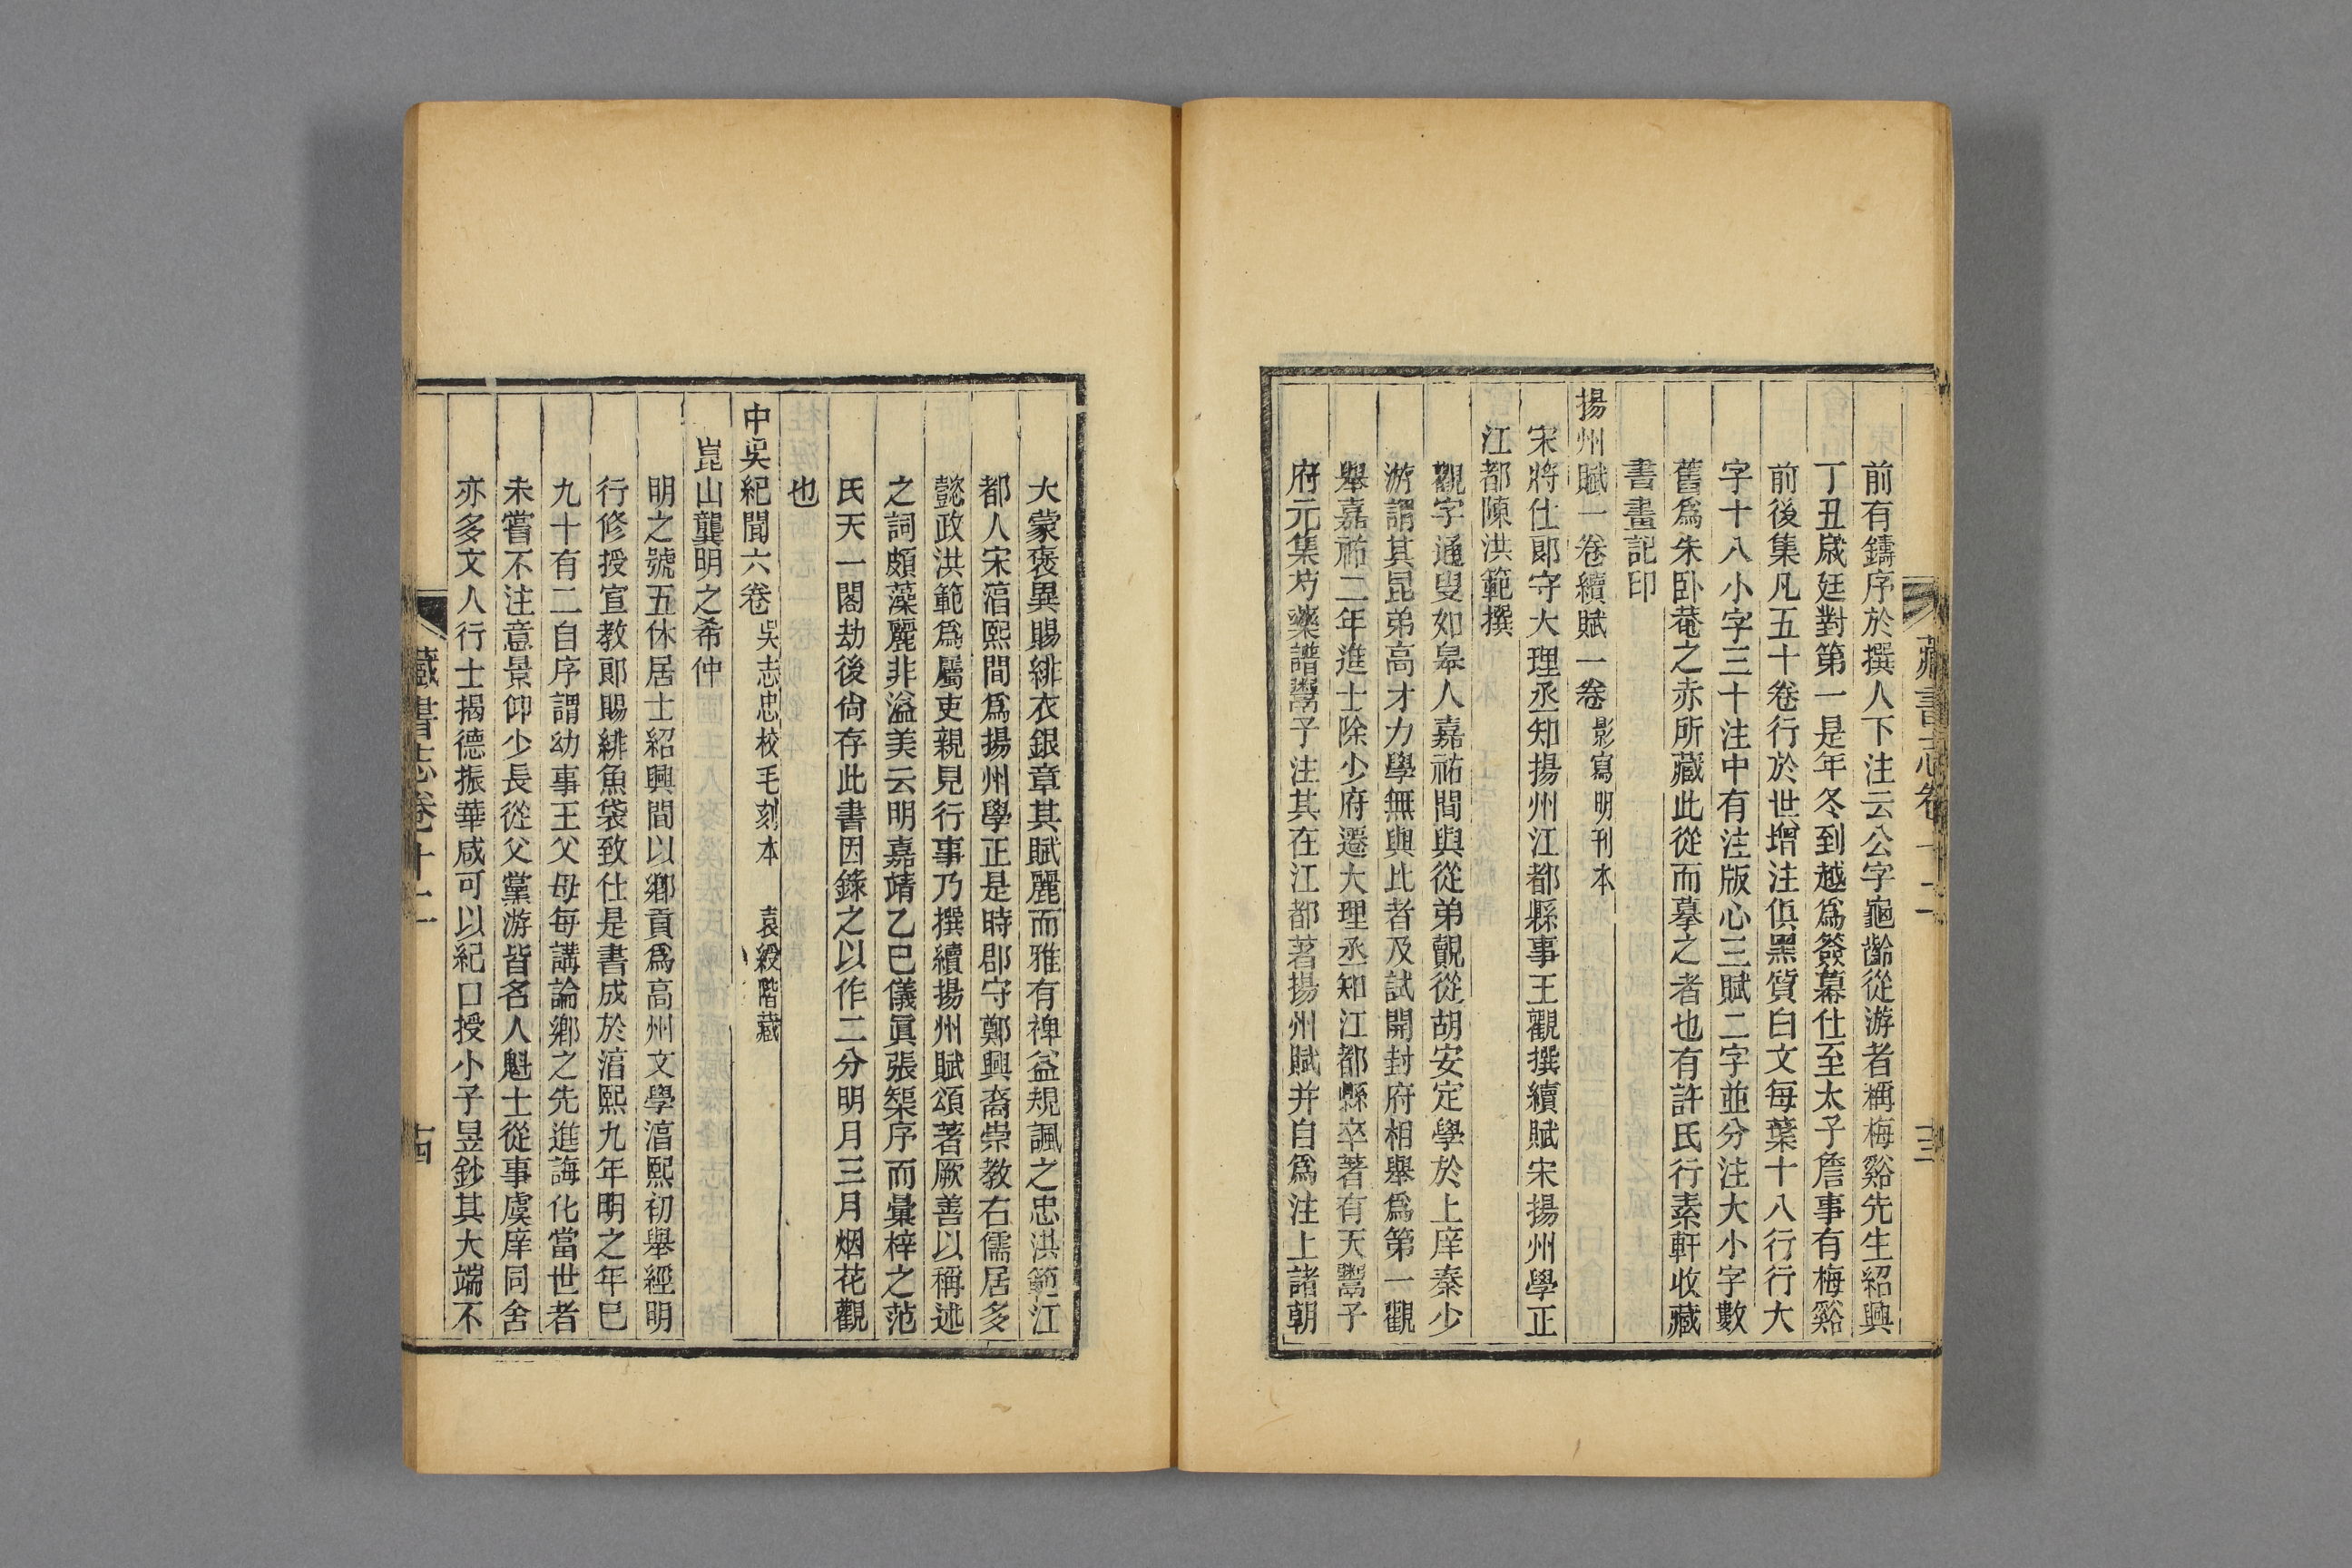 前有鑄序於撰人下注云公字龜齡從游者稱梅谿先生紹興
丁丑歲廷對第一是年冬到越爲簽幕仕至太子詹事有梅谿
前後集凡五十卷行於世增注俱黑質白文每葉十八行行大
字十八小字三十注中有注版心三賦二字並分注大小字數
舊爲朱卧菴之赤所藏此從而摹之者也有許氏行素軒收藏
書畫記印
揚州賦一卷續賦一卷 影寫明刊本
宋將仕郎守大理丞知揚州江都縣事王觀撰續賦宋揚州學正
江都陳洪範撰
觀字通叟如皋人嘉祐間與從弟覿從胡安定學於上庠秦少
游謂其昆弟高才力學無與比者及試開封府相舉爲第一觀
舉嘉祐二年進士除少府遷大理丞知江都縣卒著有天鬻子
府元集芍藥譜鬻子注其在江都著揚州賦并自爲注上諸朝
藏書志卷十二
十三
大蒙褒異賜緋衣銀章其賦麗而雅有裨益規諷之忠洪範江
都人宋淳熙間爲揚州學正是時郡守鄭興裔崇教右儒居多
懿政洪範爲屬吏親見行事乃撰續揚州賦頌著厥善以稱述
之詞頗藻麗非溢美云明嘉靖乙巳儀眞張榘序而彙梓之范
氏天一閣劫後尙存此書因錄之以作二分明月三月烟花觀
也
中吳紀聞六卷 吳志忠校毛刻本 袁綬階藏
崑山龔明之希仲
明之號五休居士紹興間以鄉貢爲高州文學淳熙初舉經明
行修授宣教郎賜緋魚袋致仕是書成於淳熙九年明之年巳
九十有二自序謂幼事王父母每講論鄉之先進誨化當世者
未嘗不注意景仰少長從父黨游皆名人魁士從事虞庠同舍
亦多文人行士揭德振華咸可以紀口授小子昱鈔其大端不
藏書志卷十二
十四